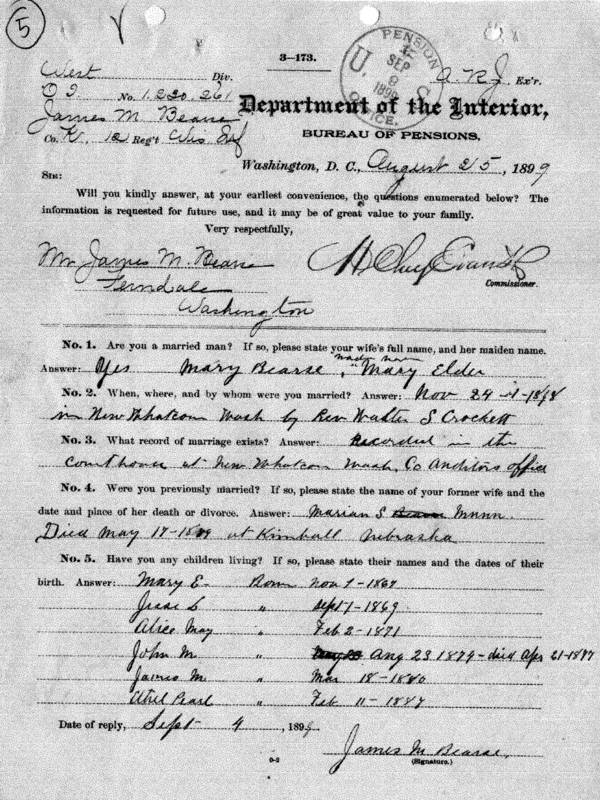 5
3—173.
U. S. PENSION OFFICE. SEP 9 1899
West Div.
No. 1,220,261
A. R. J. Ex'r.
James M Bearse
Co. K, 12 Reg't Wis Inf
Department of the Interior,
BUREAU OF PENSIONS,
Washington, D. C., August 25, 1899
SIR:
Will you kindly answer, at your earliest convenience, the questions enumerated below? The
information is requested for future use, and it may be of great value to your family.
Very respectfully,
H Clay Evans
Commissioner.
Mr James M. Bearse
Ferndale
Washington
No. 1. Are you a married man? If so, please state your wife's full name, and her maiden name.
Answer: Yes Mary Bearse, maiden name "Mary Elder
No. 2. When, where, and by whom were you married? Answer: Nov 24
in New Whatcom Wash by Rev Walter S Crockett
No. 3. What record of marriage exists? Answer: Recorded in the
Courthouse at New Whatcom Wash, Co Auditors office
No. 4. Were you previously married? If so, please state the name of your former wife and the
date and place of her death or divorce. Answer: Marian S. Munn.
Died May 17 at Kimball Nebraska
No. 5. Have you any children living? If so, please state their names and the dates of their
birth. Answer: Mary E. Born Nov 7-1867
Jesse L " Sept 1-1869
Alice May " Feb 2-1871
John M " Aug 23 1879-died Apr 21-1887
James M. " Mar 18-1880
Ethel Pearl " Feb 11-1887
Date of reply, Sept 4, 1899.
James M Bearse,
(Signature.)